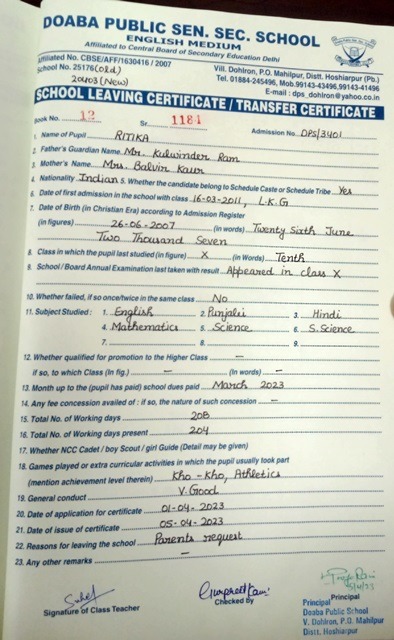 DOABA PUBLIC SEN. SEC. SCHOOL
ENGLISH MEDIUM
Affiliated to Central Board of Secondary Education Delhi
Affiliated No. CBSE/AFF/1630416 / 2007
School No. 25176 (old)
20403 (New)
Vill. Dohlron, P.O. Mahilpur, Distt. Hoshiarpur (Pb.)
Tel. 01884-245496, Mob.99143-43496,99143-41496
E-mail : dps_dohlron@yahoo.co.in
SCHOOL LEAVING CERTIFICATE / TRANSFER CERTIFICATE
Book No. 12 Sr. 1184 Admission No. DPS/3401
1. Name of Pupil RITIKA
2. Father's Guardian Name Mr. Kulwinder Ram
3. Mother's Name Mrs. Balvin Kaur
4. Nationality Indian 5. Whether the candidate belong to Schedule Caste or Schedule Tribe Yes
6. Date of first admission in the school with class 16-03-2011, L.K.G
7. Date of Birth (in Christian Era) according to Admission Register
(in figures) 26-06-2007 (in words) Twenty Sixth June
Two Thousand Seven
8. Class in which the pupil last studied (in figure) X (in Words) Tenth
9. School/Board Annual Examination last taken with result Appeared in class X
10. Whether failed, if so once/twice in the same class No
11. Subject Studied : 1. English 2. Punjabi 3. Hindi
4. Mathematics 5. Science 6. S.Science
7. 8. 9.
12. Whether qualified for promotion to the Higher Class —
if so, to which Class (In fig.) — (In words) —
13. Month up to the (pupil has paid) school dues paid March 2023
14. Any fee concession availed of : if so, the nature of such concession —
15. Total No. of Working days 208
16. Total No. of Working days present 204
17. Whether NCC Cadet / boy Scout / girl Guide (Detail may be given)
18. Games played or extra curricular activities in which the pupil usually took part
(mention achievement level therein) Kho-Kho, Athletics
19. General conduct V.Good
20. Date of application for certificate 01-04-2023
21. Date of issue of certificate 05-04-2023
22. Reasons for leaving the school Parents request
23. Any other remarks —
Signature of Class Teacher
Checked By
Principal
Principal
Doaba Public School
V. Dohlron, P.O. Mahilpur
Distt. Hoshiarpur